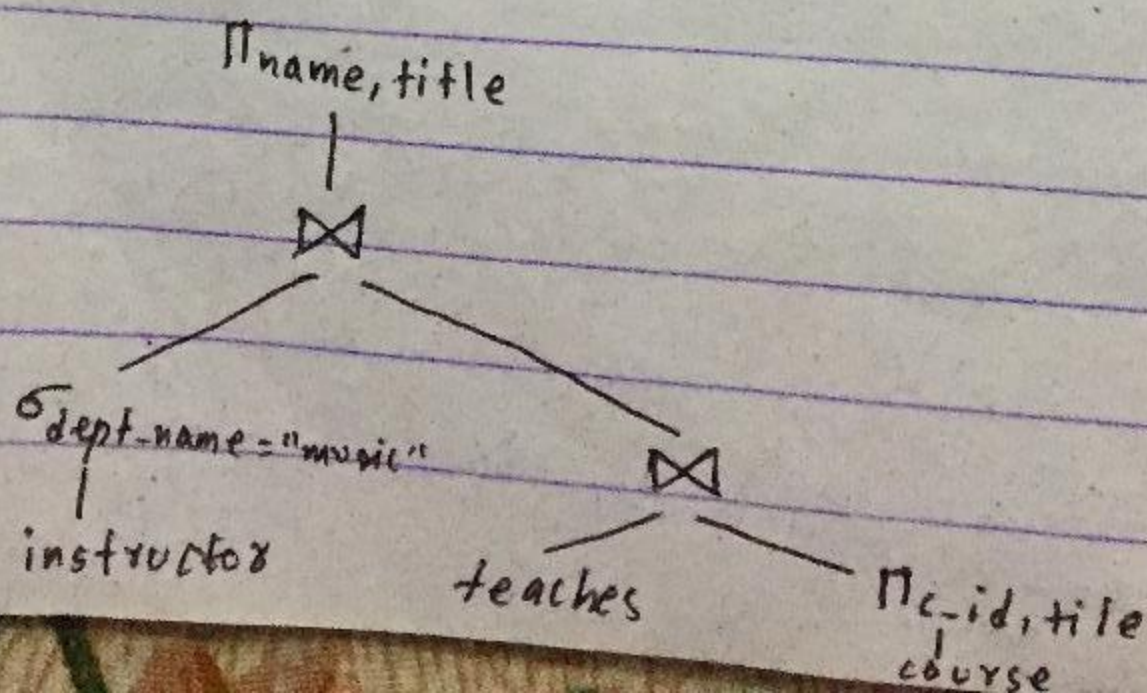 Πname, title
⋈
σdept-name="music"
⋈
instructor
teaches
Πc-id, tile
course